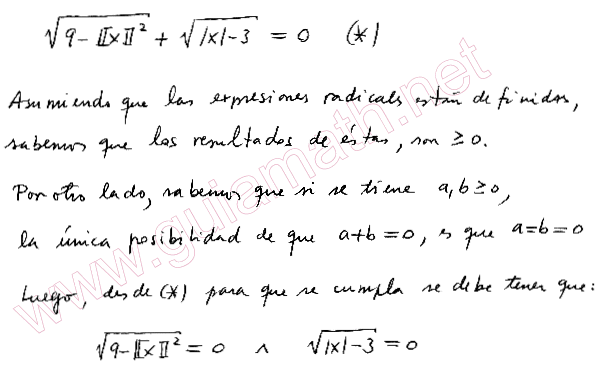 √(9-⟦x⟧²) + √(|x|-3) = 0 (*)
Asumiendo que las expresiones radicales están definidas,
sabemos que los resultados de éstas, son ≥ 0.
Por otro lado, sabemos que si se tiene a,b ≥ 0,
la única posibilidad de que a+b=0, es que a=b=0
Luego, desde (*) para que se cumpla se debe tener que:
√(9-⟦x⟧²) = 0 ∧ √(|x|-3) = 0
www.guiamath.net